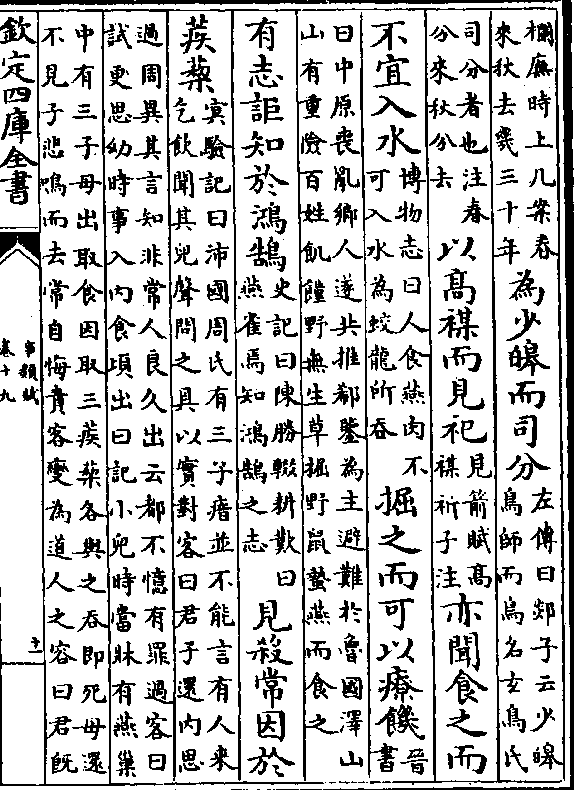 欄廡時上几案春
來秋去幾三十年
為少皞而司分
左傳曰郯子云少皞
鳥師而鳥名玄鳥氏
司分者也注春
分來秋分去
以髙禖而見祀
見箭賦髙
禖祈子注
亦聞食之而
不宜入水
博物志曰人食燕肉不
可入水為蛟龍所吞
掘之而可以療饑
晉
書
曰中原喪亂鄉人遂共推郗鑒為主避難於魯國澤山
山有重險百姓飢饉野無生草掘野鼠蟄燕而食之
有志詎知於鴻鵠
史記曰陳勝輟耕歎曰
燕雀焉知鴻鵠之志
見殺常因於
蒺蔾
冥驗記曰沛國周氏有三子瘖並不能言有人來
乞飲聞其兒聲問之具以實對客曰君子還内思
過周異其言知非常人良久出云都不憶有罪過客曰
試更思幼時事入内食頃出曰記小兒時當牀有燕巢
中有三子母出取食因取三蒺蔾各與之吞即死母還
不見子悲鳴而去常自悔責客變為道人之容曰君既
欽定四庫全書
事類賦
卷十九
十